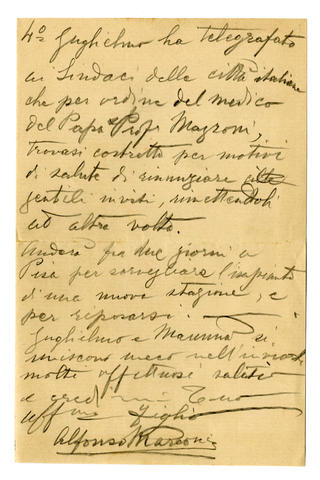 4º Guglielmo ha telegrafato
ai Sindaci delle città italiane
che per ordine del medico
del Papa Prof. Mazzoni,
trovasi costretto per motivi
di salute di rinunziare alle
gentili inviti, rimettendoli
ad altra volta.
Andrà fra due giorni a
Pisa per sorvegliare l'impianto
di una nuova stazione, e
per riposarsi.
Guglielmo e Mamma si
uniscono meco nell'inviarti
molti affettuosi saluti
e credimi Tuo
aff.mo figlio
Alfonso Marconi